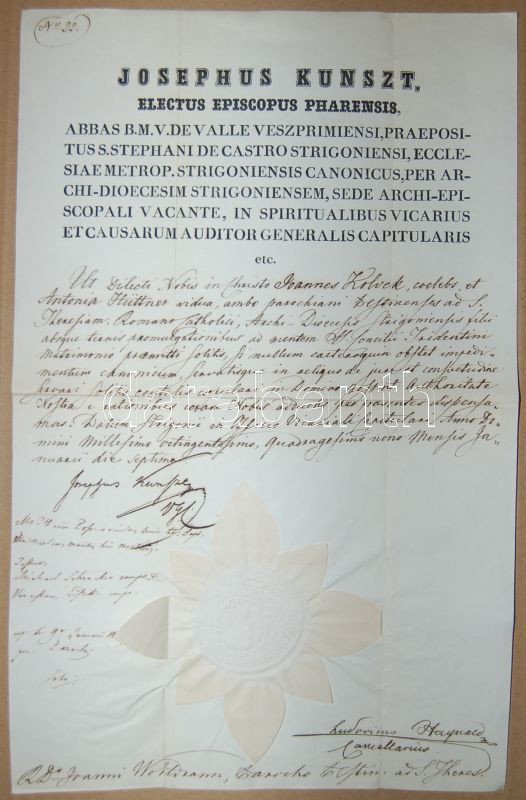 No 22.
JOSEPHUS KUNSZT,
ELECTUS EPISCOPUS PHARENSIS,
ABBAS B.M.V.DE VALLE VESZPRIMIENSI,PRAEPOSI-
TUS S.STEPHANI DE CASTRO STRIGONIENSI, ECCLE-
SIAE METROP. STRIGONIENSIS CANONICUS,PER AR-
CHI-DIOECESIM STRIGONIENSEM, SEDE ARCHI-EPI-
SCOPALI VACANTE, IN SPIRITUALIBUS VICARIUS
ET CAUSARUM AUDITOR GENERALIS CAPITULARIS
etc.
Ut Dilecti Nobis in Christo Joannes Kolvek, coelebs, et
Antonia Hüttner vidua, ambo parochiani Pestinenses ad S.
Theresiam, Romano Catholici, Archi-Dioecesis Strigoniensis filii
absque trinis promulgationibus ad mentem SS. Concilii Tridentini
Matrimonio praemitti solitis, si nullum caeteroquin obstet impedi-
mentum canonicum, servatisque in reliquo de jure et consvetudine
servari solitis copulari in Domino possint Authoritate
Nostra e rationibus coram Nobis adductis praesentibus dispensa-
mus. Datum Strigonii in Officio Vicariali Capitulari Anno Do-
mini Millesimo octingentesimo, quadragesimo nono Mensis Ja-
nuarii die septima.
Josephus Kunszt
darabanth
Michael
Ludovicus Haynald
Cancellarius.
R. Do Joanni Parocho Pestin. ad S. Theres.